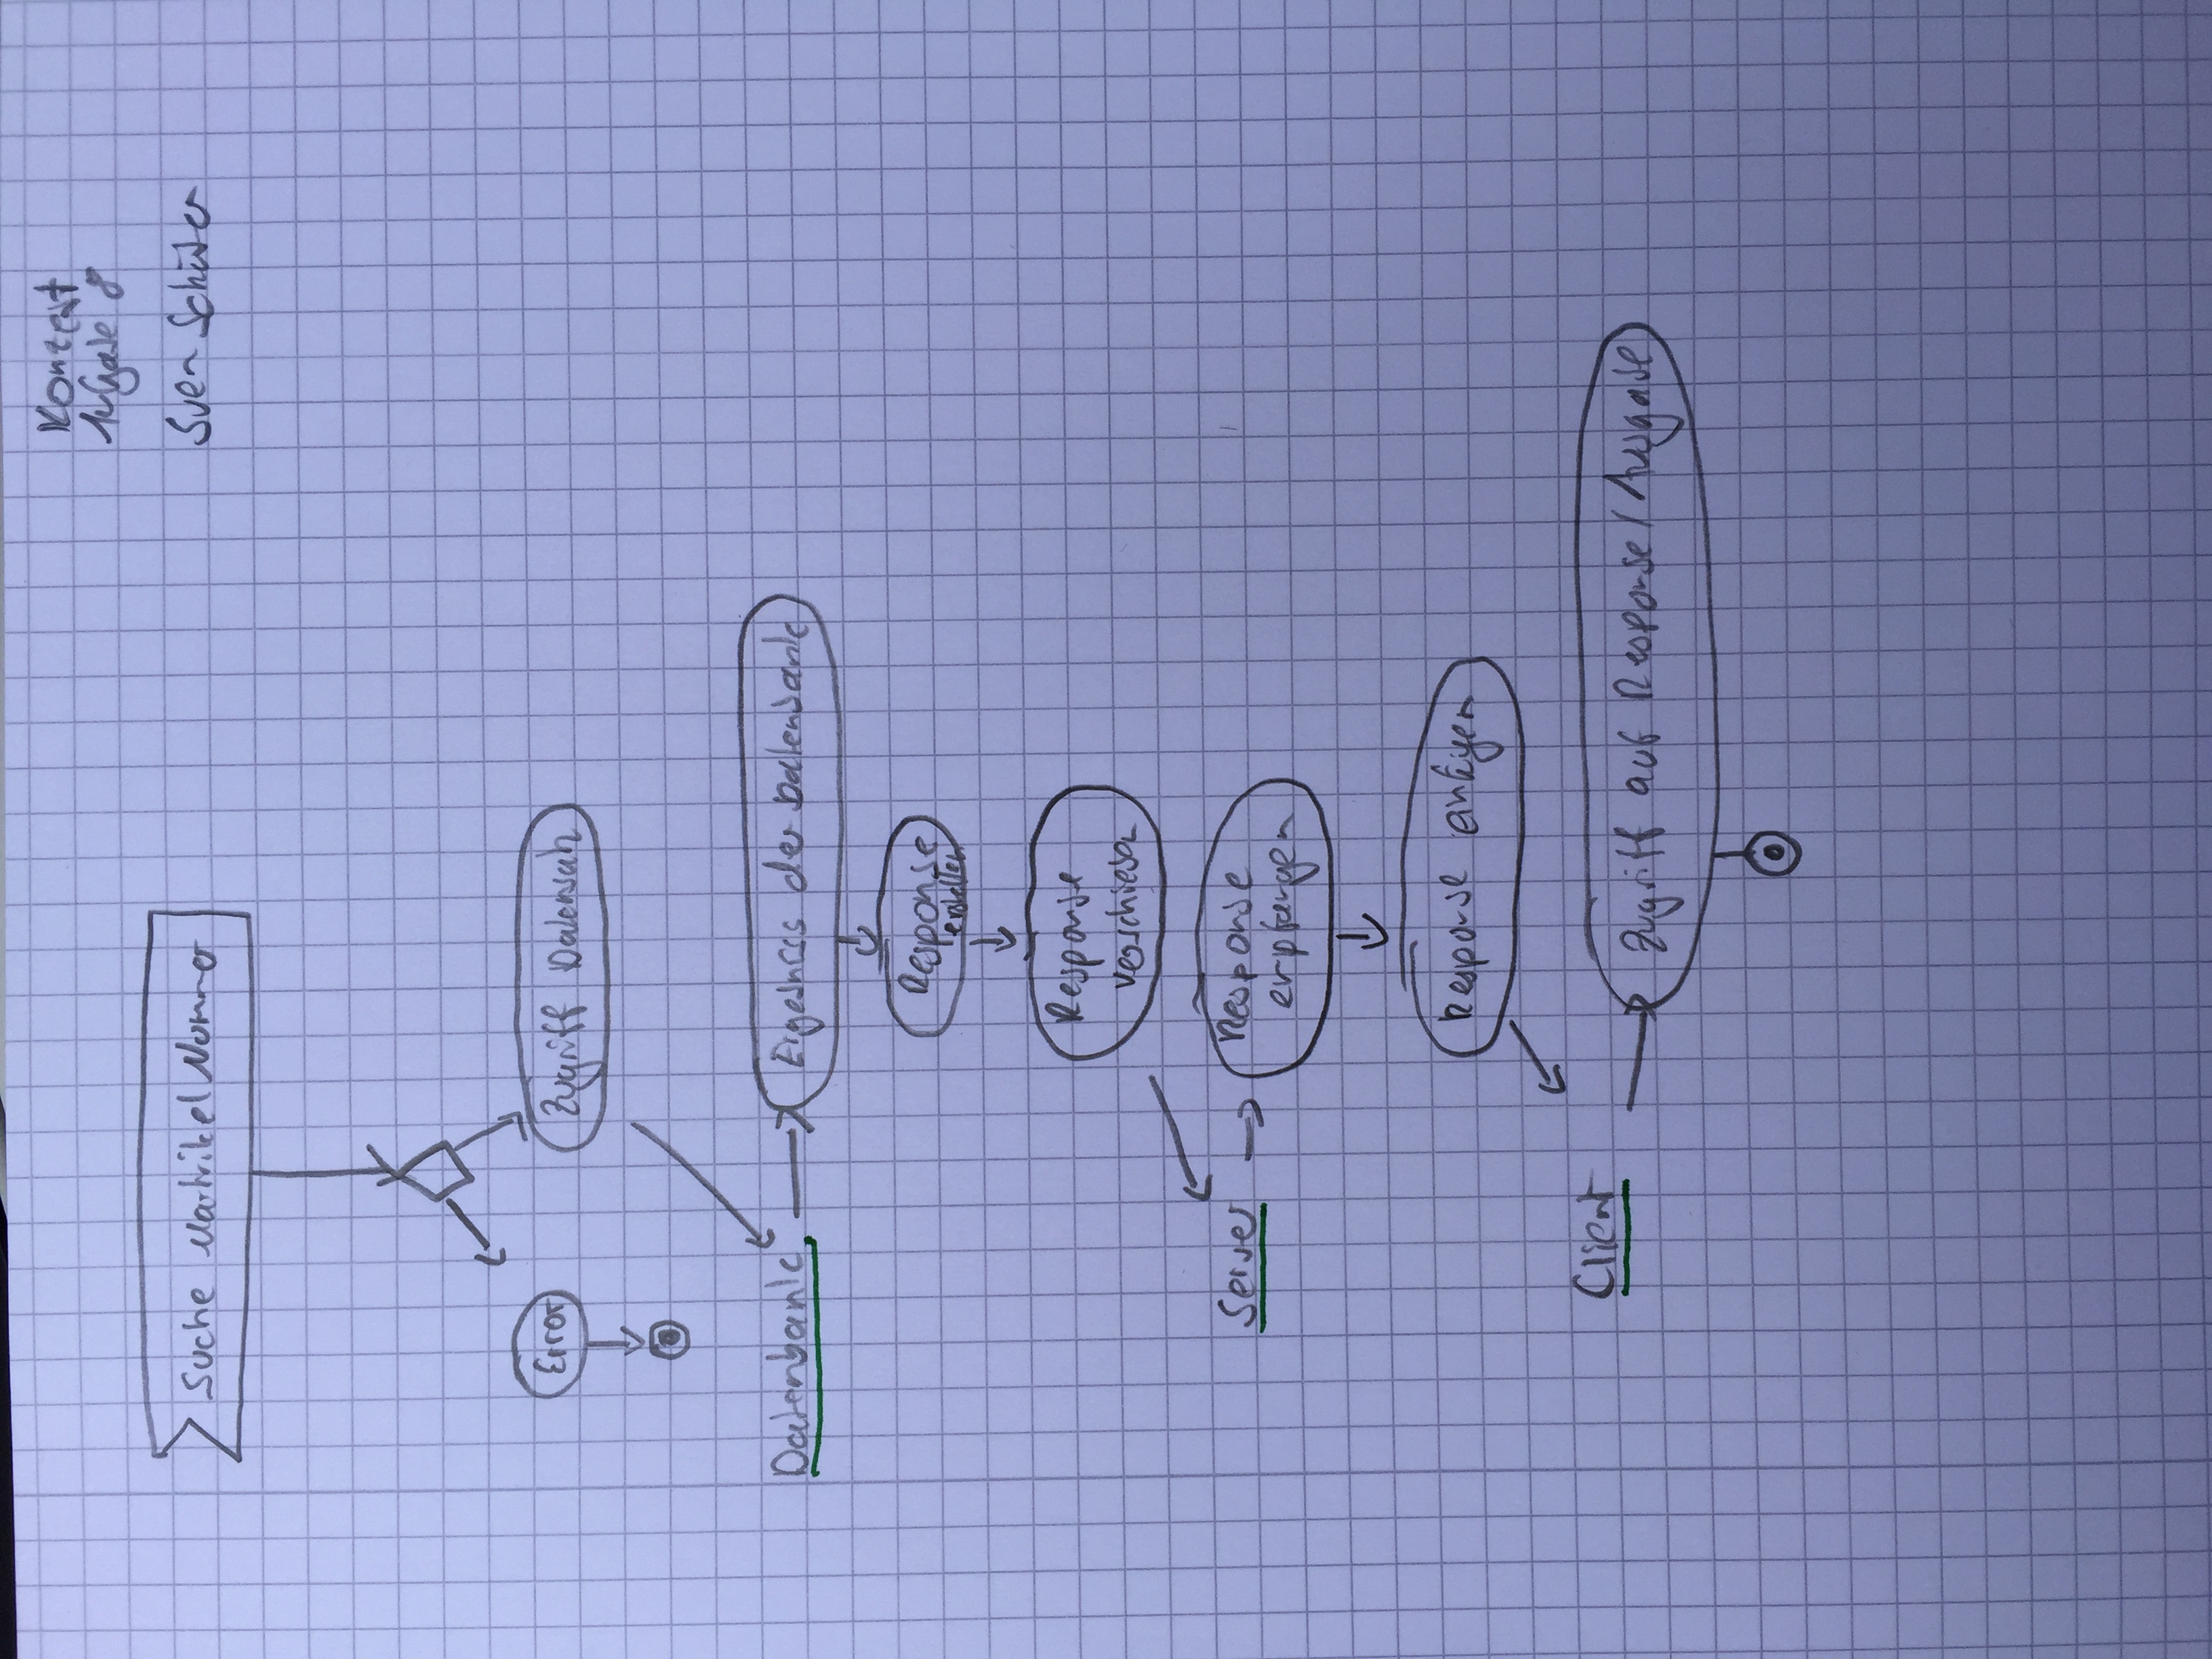 Konzept
Aufgabe 8
Sven
Suche Matrikel Nummer
Error
Zugriff Datensatz
Datenbank
Ergebniss der Datenbank
Response
erstellen
Response
verschicken
Server
Response
empfangen
Response einfügen
Client
Zugriff auf Response / Ausgabe